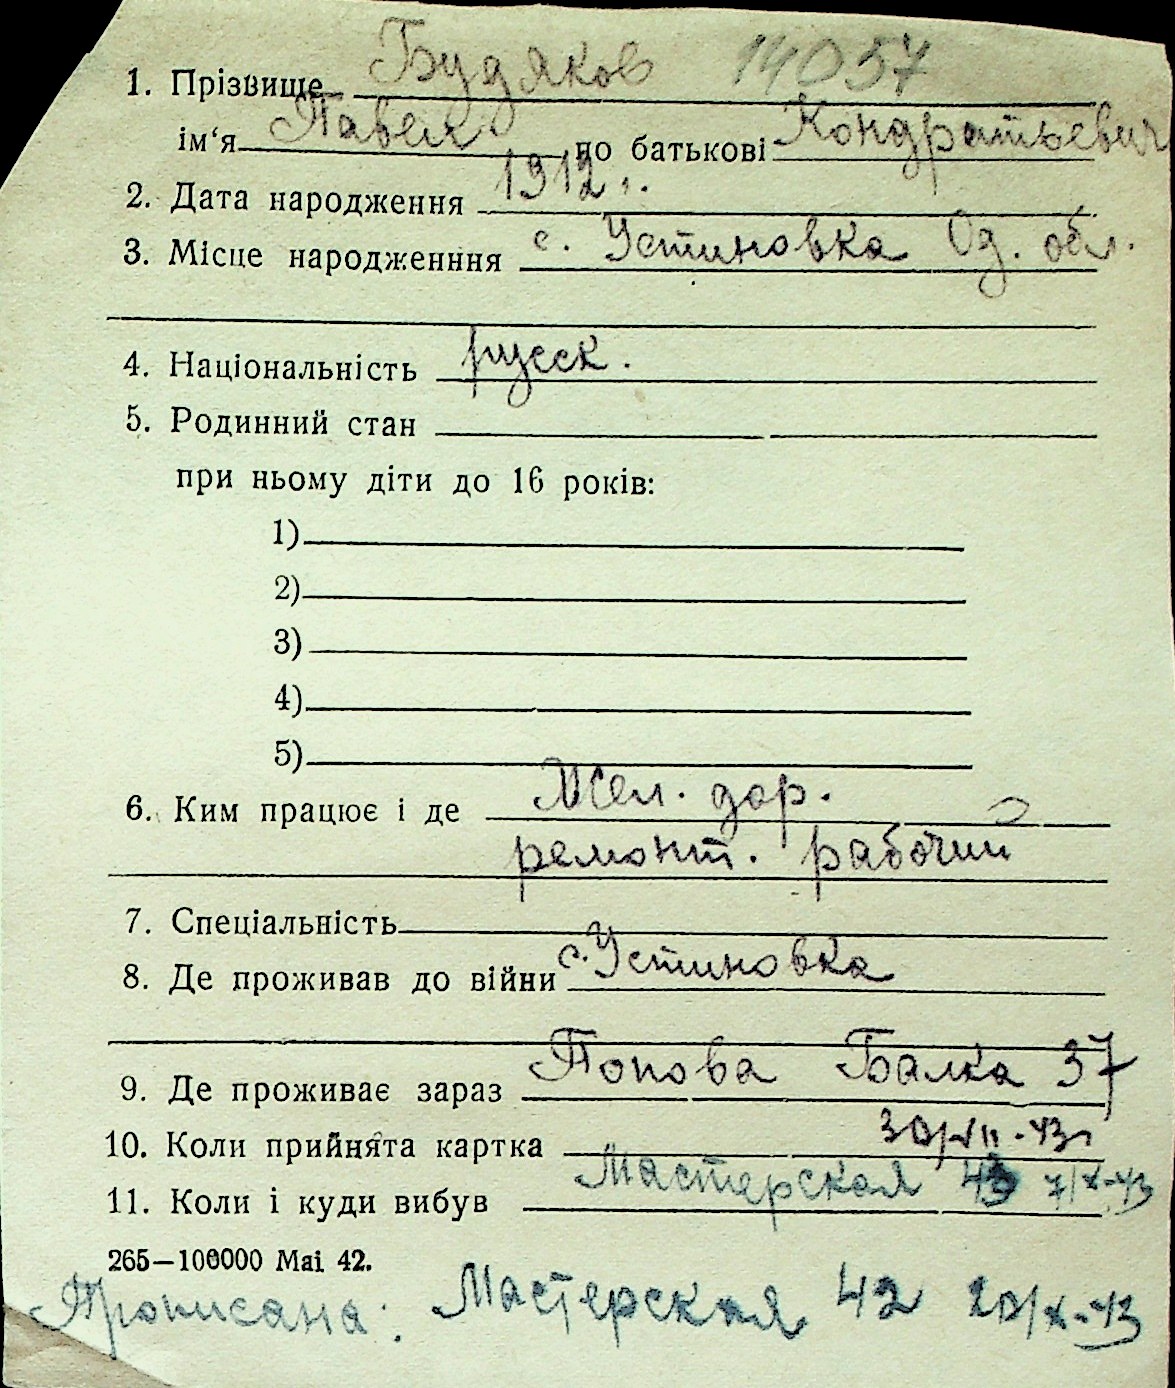 1. Прізвище Будяков 14057
ім‘я Павел по батькові Кондратьевич
2. Дата народження 1912 г.
3. Місце народженння с. Устиновка Од. обл.
4. Національність русск.
5. Родинний стан
при ньому діти до 16 років:
1)
2)
3)
4)
5)
6. Ким працює і де Жел. дор.
ремонт. рабочий
7. Спеціальність
8. Де проживав до війни с. Устиновка
9. Де проживає зараз Попова Балка 37
10. Коли прийнята картка 30/VII-43г
11. Коли і куди вибув Мастерская 7/X-43
265—100000 Mai 42.
Прописана: Мастерская 42 20/X-43